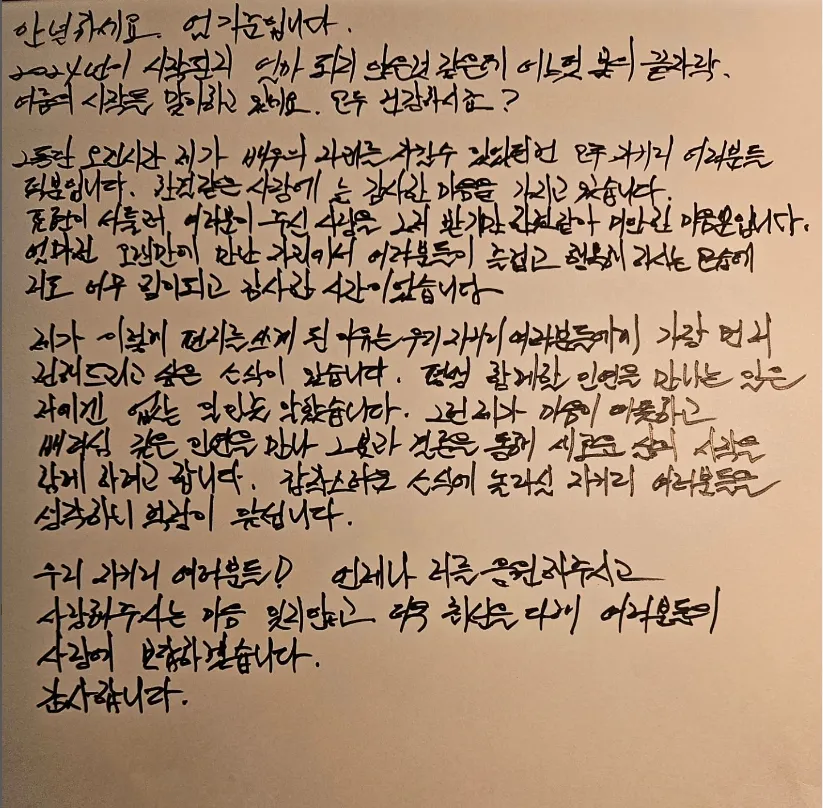 안녕하세요. 엄기준입니다.
2024년이 시작된지 얼마 되지 않은것 같은데 어느덧 봄의 끝자락,
여름의 시작을 맞이하고 있네요. 모두 건강하시죠?
그동안 오랜시간 제가 배우의 자리를 지킬수 있었던건 모두 여러분들
덕분입니다. 한결같은 사랑에 늘 감사한 마음을 가지고 있습니다.
표현이 서툴러 여러분이 주신 사랑을 그저 받기만 한것같아 미안한 마음뿐입니다.
얼마전 오랜만에 만난 자리에서 여러분들이 즐겁고 행복해 하시는 모습에
저도 너무 힘이되고 감사한 시간이었습니다
제가 이렇게 편지를 쓰게 된 이유는 우리 여러분들께 가장 먼저
전해드리고 싶은 소식이 있습니다. 평생 함께할 인연을 만나는 일은
저에겐 없는 일인줄 알았습니다. 그런 제가 마음이 따뜻하고
배려심 깊은 인연을 만나 그분과 결혼을 통해 새로운 삶의 시작을
함께 하려고 합니다. 갑작스러운 소식에 놀라실 여러분들을
생각하니 걱정이 됩니다.
우리 여러분들! 언제나 저를 응원해주시고
사랑해주시는 마음 잊지않고 더욱 최선을 다해 여러분들의
사랑에 보답하겠습니다.
감사합니다.